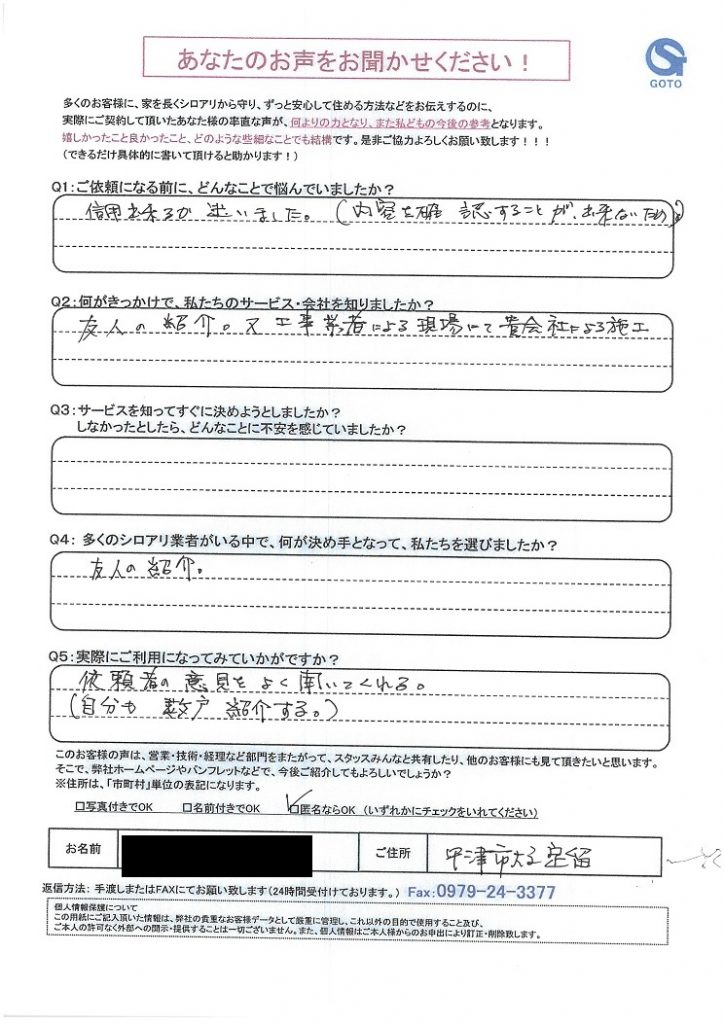 あなたのお声をお聞かせください！
GOTO
多くのお客様に、家を長くシロアリから守り、ずっと安心して住める方法などをお伝えするのに、
実際にご契約して頂いたあなた様の率直な声が、何よりの力となり、また私どもの今後の参考となります。
嬉しかったこと良かったこと、どのような些細なことでも結構です。是非ご協力よろしくお願い致します！！！
（できるだけ具体的に書いて頂けると助かります！）
Q1：ご依頼になる前に、どんなことで悩んでいましたか？
信用出来るか迷いました。（内容を確認することが、出来ないため）
Q2：何がきっかけで、私たちのサービス・会社を知りましたか？
友人の紹介。又工事業者による現場にて貴会社による施工
Q3：サービスを知ってすぐに決めようとしましたか？
しなかったとしたら、どんなことに不安を感じていましたか？
Q4： 多くのシロアリ業者がいる中で、何が決め手となって、私たちを選びましたか？
友人の紹介。
Q5：実際にご利用になってみていかがですか？
依頼者の意見をよく聞いてくれる。
（自分も数戸紹介する。）
このお客様の声は、営業・技術・経理など部門をまたがって、スタッスみんなと共有したり、他のお客様にも見て頂きたいと思います。
そこで、弊社ホームページやパンフレットなどで、今後ご紹介してもよろしいでしょうか？
※住所は、「市町村」単位の表記になります。
□写真付きでOK □名前付きでOK □匿名ならOK （いずれかにチェックをいれてください）
お名前 ご住所 中津市大字定留
返信方法： 手渡しまたはFAXにてお願い致します（24時間受付けております。） Fax：0979-24-3377
個人情報保護について
この用紙にご記入頂いた情報は、弊社の貴重なお客様データとして厳重に管理し、これ以外の目的で使用すること及び、
ご本人の許可なく外部への開示・提供することは一切ございません。また、個人情報はご本人様からのお申出により訂正・削除致します。